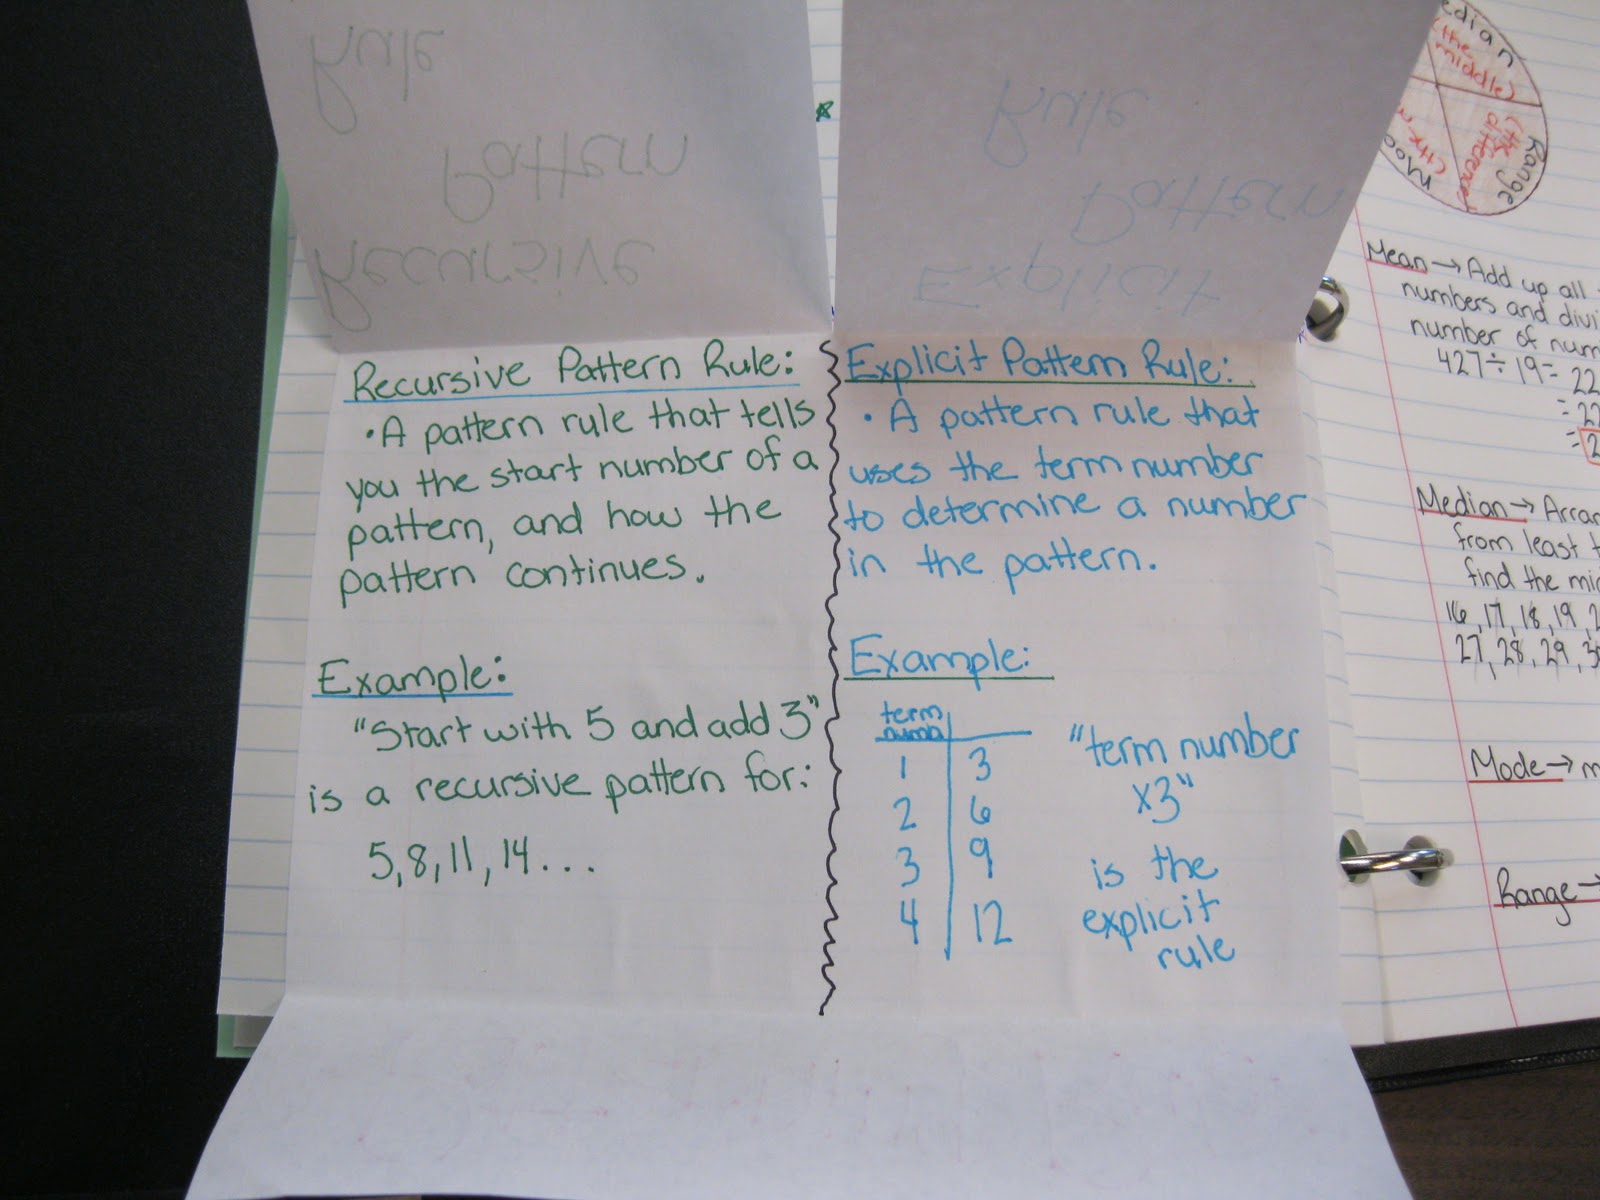 Rule
Pattern
Recursive
Rule
Pattern
Explicit
Recursive Pattern Rule:
• A pattern rule that tells
you the start number of a
pattern, and how the
pattern continues.
Example:
"Start with 5 and add 3"
is a recursive pattern for:
5, 8, 11, 14...
Explicit Pattern Rule:
• A pattern rule that
uses the term number
to determine a number
in the pattern.
Example:
term
1 3
2 6
3 9
4 12
"term number
x3"
is the
explicit
rule
(the
middle)
Range
(the
difference)
Mean → Add up all
numbers and
number of
427 ÷ 19 =
Median →
from least
find the
16, 17, 18, 19,
27, 28, 29,
Mode →
Range →